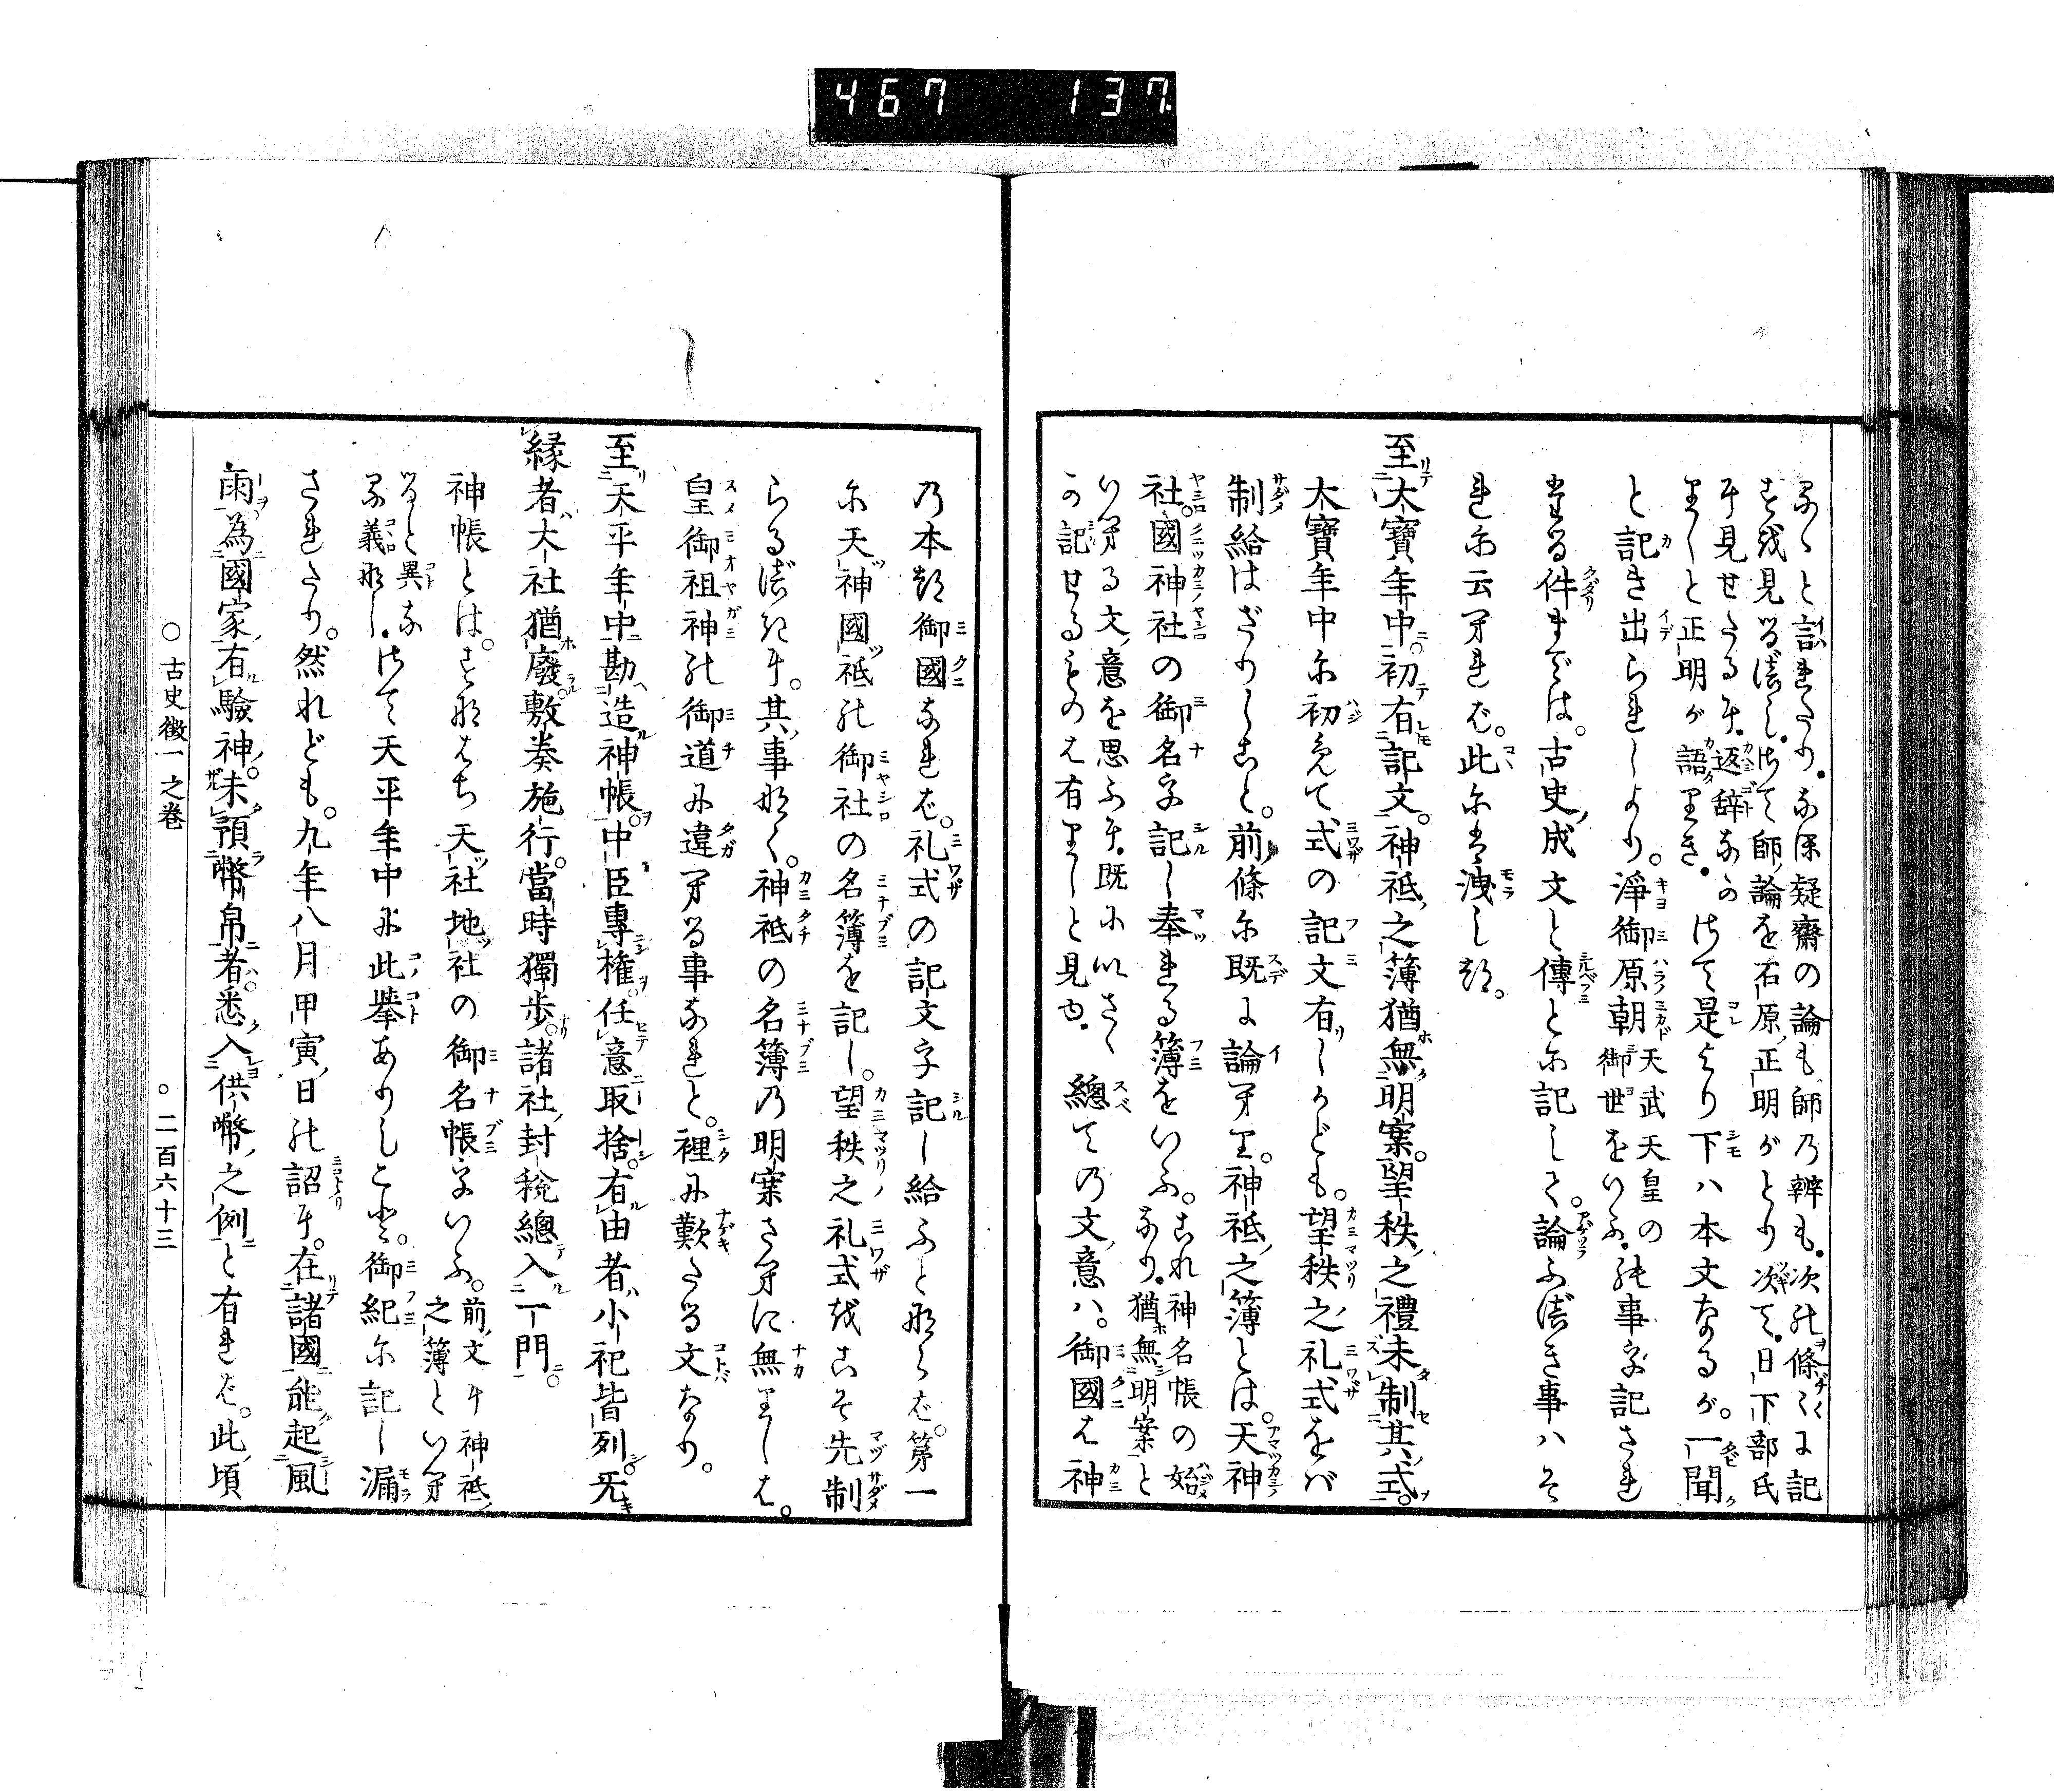 467 137.
などと言れたり。なほ疑齋の論も、師乃辨も、次の條々に記
すを見るべし。さて師論を石原正明がとり次て、日下部氏
に見せたるに、返辞なか
りしと正明が語りき。さて是より下ハ本文なるが。一聞
と記き出られしより。淨御原朝天武天皇の
御世をいふ。の事を記され
たる件までは。古史成文と傳とに記して。論ふべき事ハそ
れに云へれば。此には洩しつ。
至太寶年中。初有記文。神祇之簿猶無明案。望秩之禮未制其式。
太寶年中に初めて式の記文有しかども。望秩之礼式をバ
制給はざりしこと。前條に既に論へり。神祇之簿とは。天神
社。國神社の御名を記し奉れる簿をいふ。これ神名帳の始
なり。猶無明案と
いへる文意を思ふに、既にいさゝ
か記せるものは有りしと見ゆ。
總ての文意ハ。御國は神
乃本つ御國なれば。礼式の記文を記し給ふとならば。第一
に天神國祇の御社の名簿を記し。望秩之礼式をこそ先制
らるべきに。其事なく。神祇の名簿乃明案さへに無りしは。
皇御祖神の御道に違へる事なれと。裡に歎たる文なり。
至天平年中勘造神帳。中臣專權任意取捨。有由者小祀皆列。无
緣者大社猶廢。敷奏施行。當時獨步。諸社封稅總入一門。
神帳とは。すなはち天社地社の御名帳をいふ。前文に神祇
之簿といへ
ると異な
る義なし。さて天平年中に此擧ありしこと。御紀に記し漏
されたり。然れども。九年八月甲寅日の詔に。在諸國能起風
雨。為國家有驗神。未預幣帛者。悉入供幣之例と有れば。此頃
○古史徵一之卷
○二百六十三